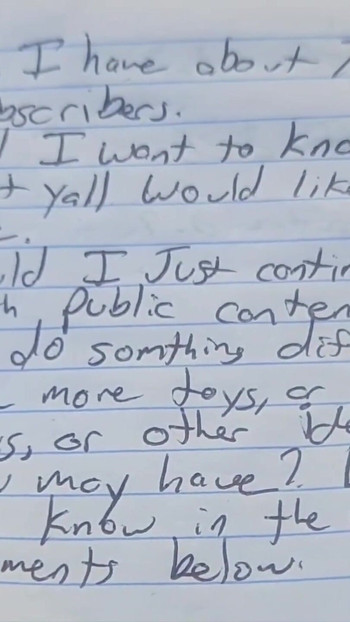 I have about
bscribers.
I want to kno
yall would lik
ld I Just contin
h public conten
do somthing dif
more toys, or
s, or other ide
may have?
know in the
ments below.